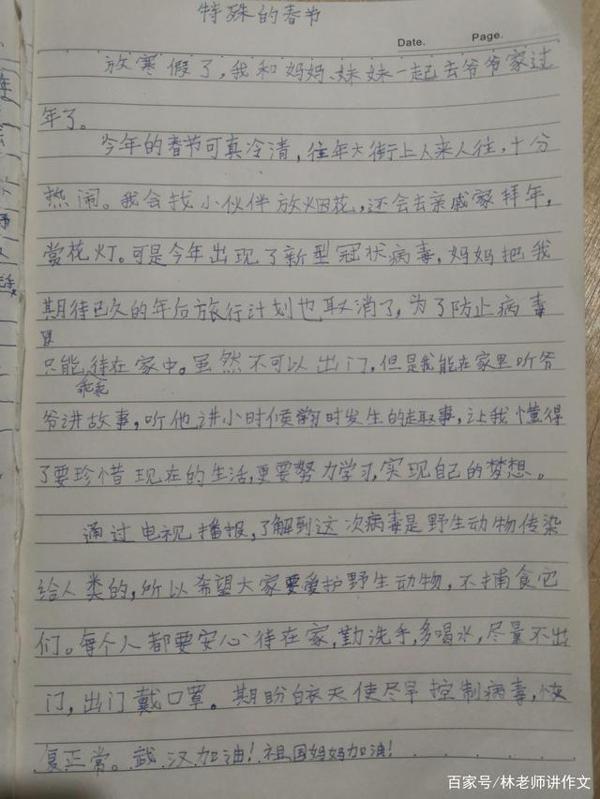 特殊的春节
Date. Page.
放寒假了,我和妈妈、妹妹一起去爷爷家过
年了。
今年的春节可真冷清,往年大街上人来人往,十分
热闹。我会找小伙伴放烟花,还会去亲戚家拜年,
赏花灯。可是今年出现了新型冠状病毒,妈妈把我
期待已久的年后旅行计划也取消了,为了防止病毒
只能待在家中。虽然不可以出门,但是我能在家里听爷
乖乖
爷讲故事,听他讲小时候学习时发生的趣事,让我懂得
了要珍惜现在的生活,更要努力学习,实现自己的梦想。
通过电视播报,了解到这次病毒是野生动物传染
给人类的,所以希望大家要爱护野生动物,不捕食它
们。每个人都要安心待在家,勤洗手,多喝水,尽量不出
门,出门戴口罩。期盼白衣天使尽早控制病毒,恢
复正常。武汉加油!祖国妈妈加油!
百家号/林老师讲作文